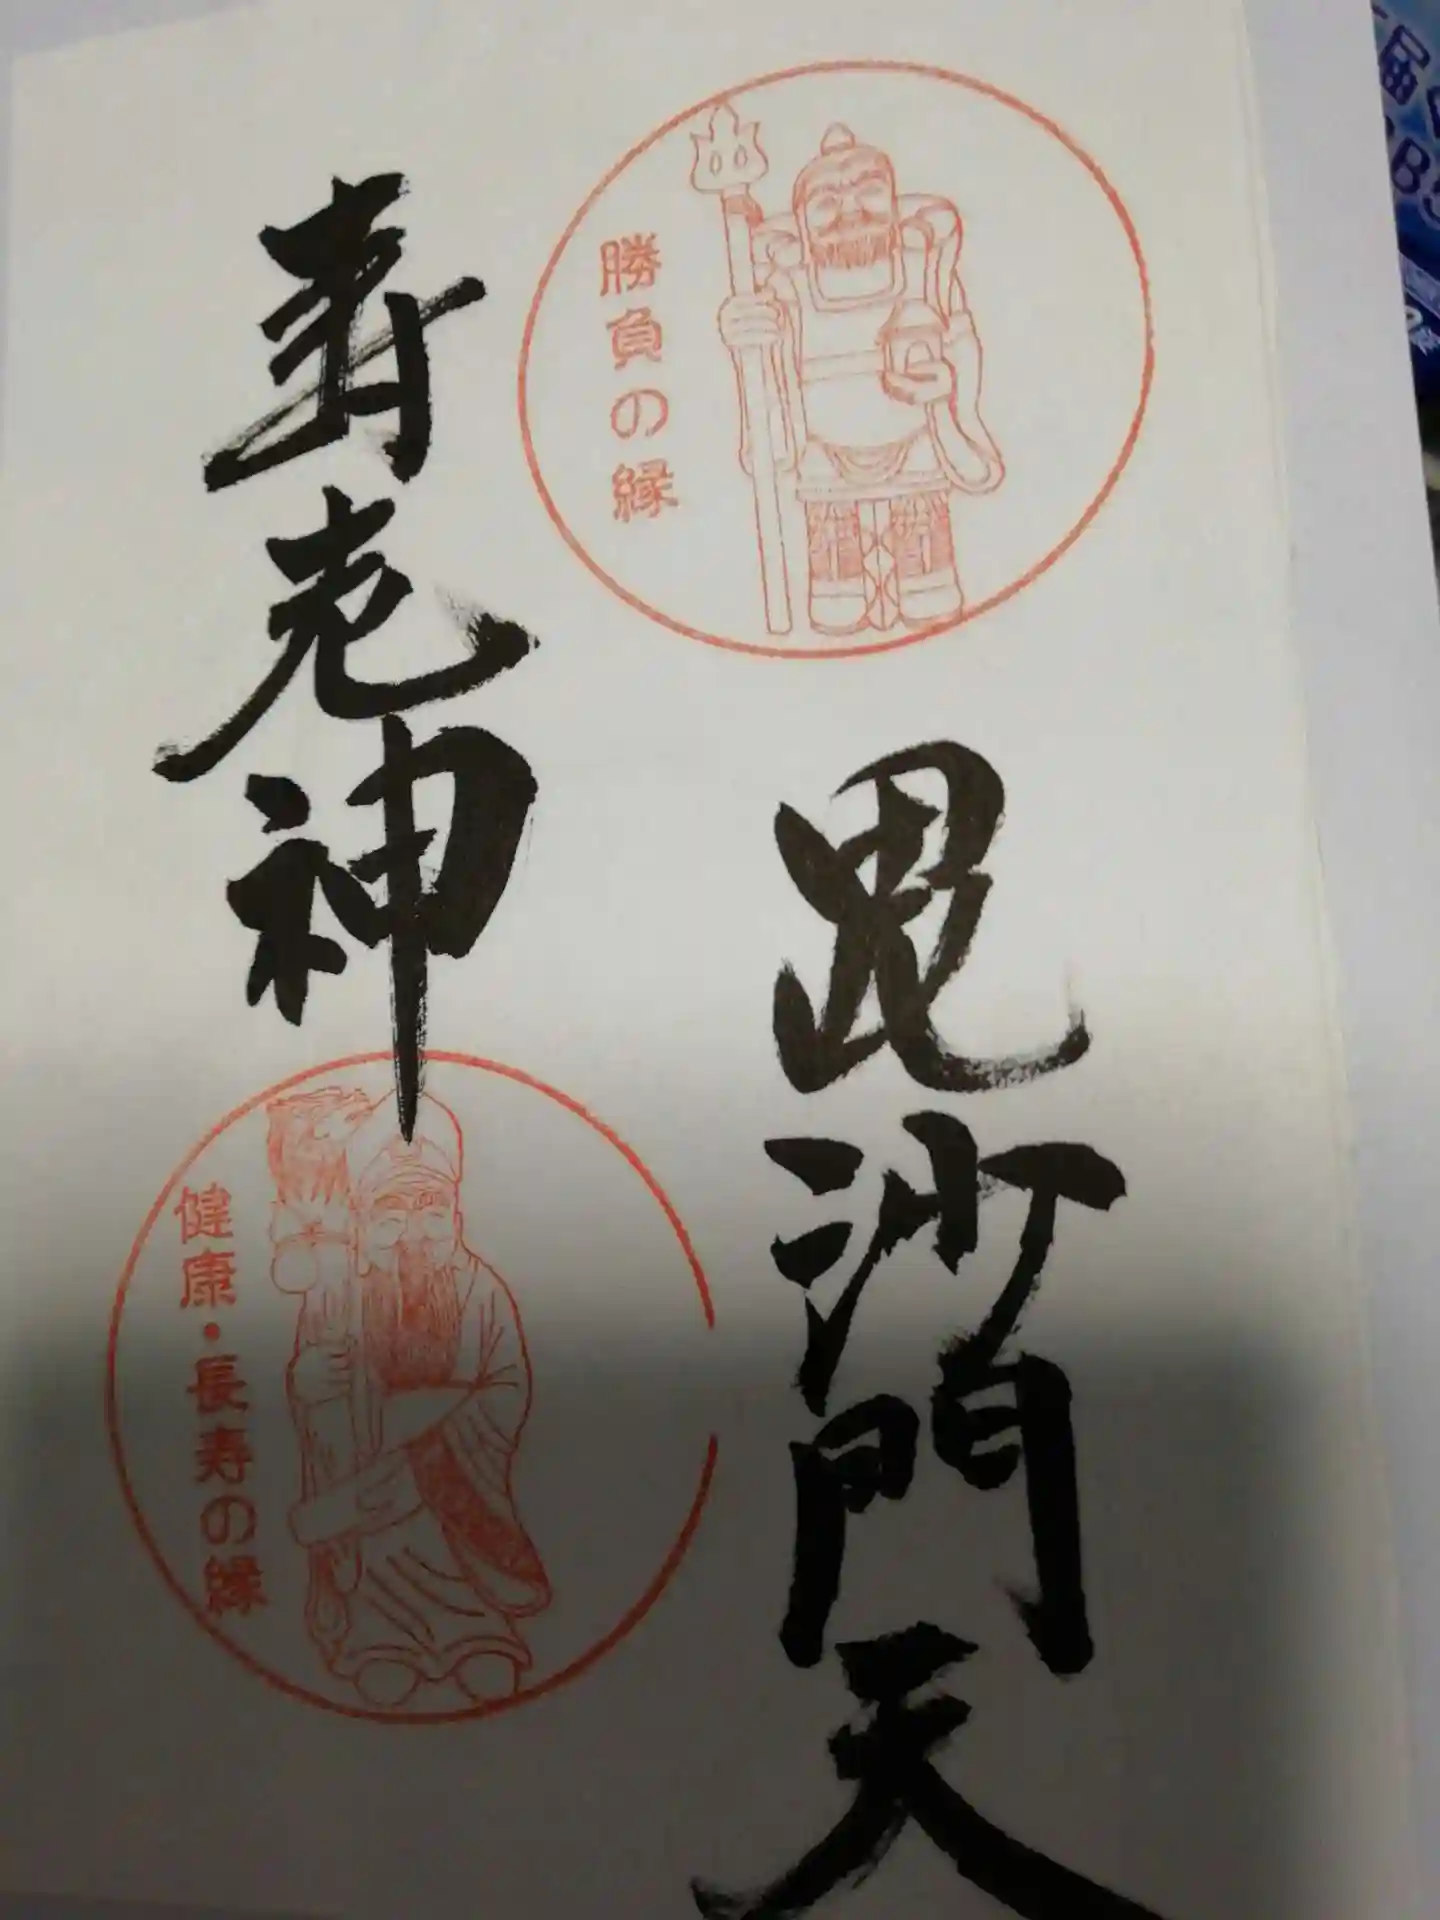 勝負の縁
毘沙門天
寿老神
健康・長寿の縁
届